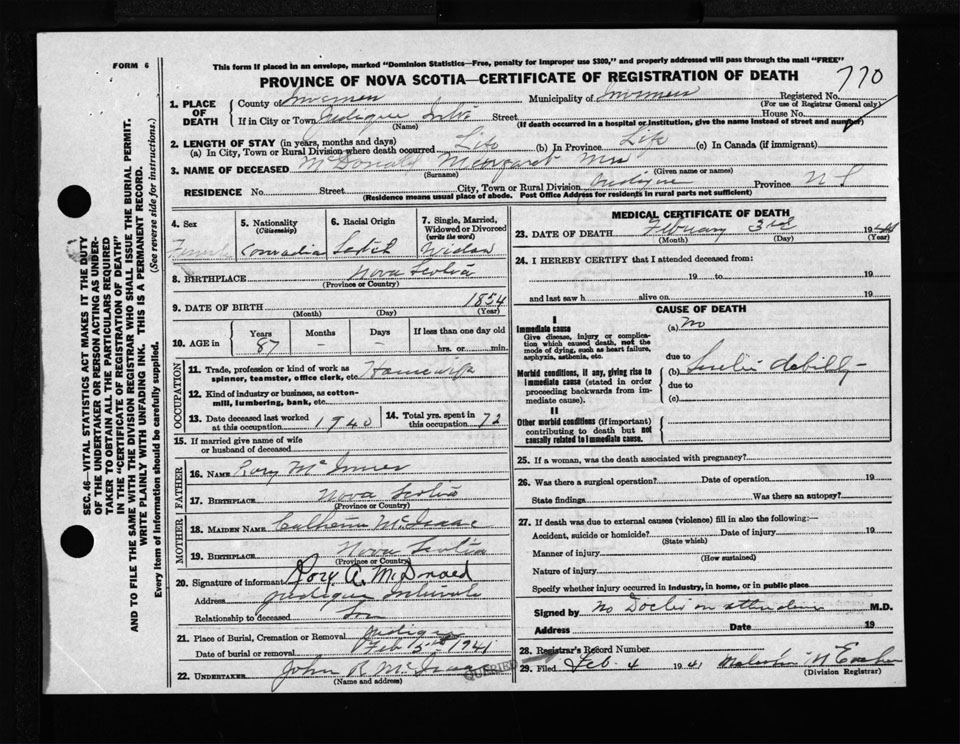 FORM 6
This form if placed in an envelope, marked "Dominion Statistics—Free, penalty for improper use $300," and properly addressed will pass through the mail "FREE"
PROVINCE OF NOVA SCOTIA—CERTIFICATE OF REGISTRATION OF DEATH
770
1. PLACE OF DEATH
County of Inverness Municipality of Inverness Registered No.
(For use of Registrar General only)
If in City or Town Street House No.
(Name) (If death occurred in a hospital or institution, give the name instead of street and number)
2. LENGTH OF STAY (in years, months and days)
(a) In City, Town or Rural Division where death occurred Life (b) In Province Life (c) In Canada (if immigrant)
3. NAME OF DECEASED McDonald Margaret Mrs
(Surname) (Given name or names)
RESIDENCE No. Street City, Town or Rural Division Province N S
(Residence means usual place of abode. Post Office Address for residents in rural parts not sufficient)
SEC. 46—VITAL STATISTICS ACT MAKES IT THE DUTY
OF THE UNDERTAKER OR PERSON ACTING AS UNDER-
TAKER TO OBTAIN ALL THE PARTICULARS REQUIRED
IN THE "CERTIFICATE OF REGISTRATION OF DEATH"
AND TO FILE THE SAME WITH THE DIVISION REGISTRAR WHO SHALL ISSUE THE BURIAL PERMIT.
WRITE PLAINLY WITH UNFADING INK. THIS IS A PERMANENT RECORD.
Every item of information should be carefully supplied. (See reverse side for instructions.)
4. Sex
Female
5. Nationality
(Citizenship)
Canadian
6. Racial Origin
Scotch
7. Single, Married,
Widowed or Divorced
(write the word)
Widow
8. BIRTHPLACE Nova Scotia
(Province or Country)
9. DATE OF BIRTH 1854
(Month) (Day) (Year)
10. AGE in
Years Months Days If less than one day old
87 - - hrs. or min.
OCCUPATION
11. Trade, profession or kind of work as
spinner, teamster, office clerk, etc. Housewife
12. Kind of industry or business, as cotton-
mill, lumbering, bank, etc.
13. Date deceased last worked
at this occupation 1940
14. Total yrs. spent in
this occupation 72
15. If married give name of wife
or husband of deceased
FATHER
16. NAME Rory McInnes
17. BIRTHPLACE Nova Scotia
(Province or Country)
MOTHER
18. MAIDEN NAME Catherine McIsaac
19. BIRTHPLACE Nova Scotia
(Province or Country)
20. Signature of informant Rory A. McDonald
Address Intervale
Relationship to deceased Son
21. Place of Burial, Cremation or Removal
Date of burial or removal Feb 5th 1941
22. UNDERTAKER John R McIsaac
(Name and address)
QUERIED
MEDICAL CERTIFICATE OF DEATH
23. DATE OF DEATH February 3rd 1941
(Month) (Day) (Year)
24. I HEREBY CERTIFY that I attended deceased from:
19 to 19
and last saw h alive on 19
CAUSE OF DEATH
I
Immediate cause
Give disease, injury or complica-
tion which caused death, not the
mode of dying, such as heart failure,
asphyxia, asthenia, etc.
(a) No
due to
Morbid conditions, if any, giving rise to
immediate cause (stated in order
proceeding backwards from im-
mediate cause).
(b) Senile debility
due to
(c)
II
Other morbid conditions (if important)
contributing to death but not
causally related to immediate cause.
25. If a woman, was the death associated with pregnancy?
26. Was there a surgical operation? Date of operation 19
State findings Was there an autopsy?
27. If death was due to external causes (violence) fill in also the following:—
Accident, suicide or homicide? Date of injury 19
(State which)
Manner of injury
(How sustained)
Nature of injury
Specify whether injury occurred in industry, in home, or in public place
Signed by No Doctor in attendance M.D.
Address Date 19
28. Registrar's Record Number
29. Filed Feb. 4 1941
(Division Registrar)